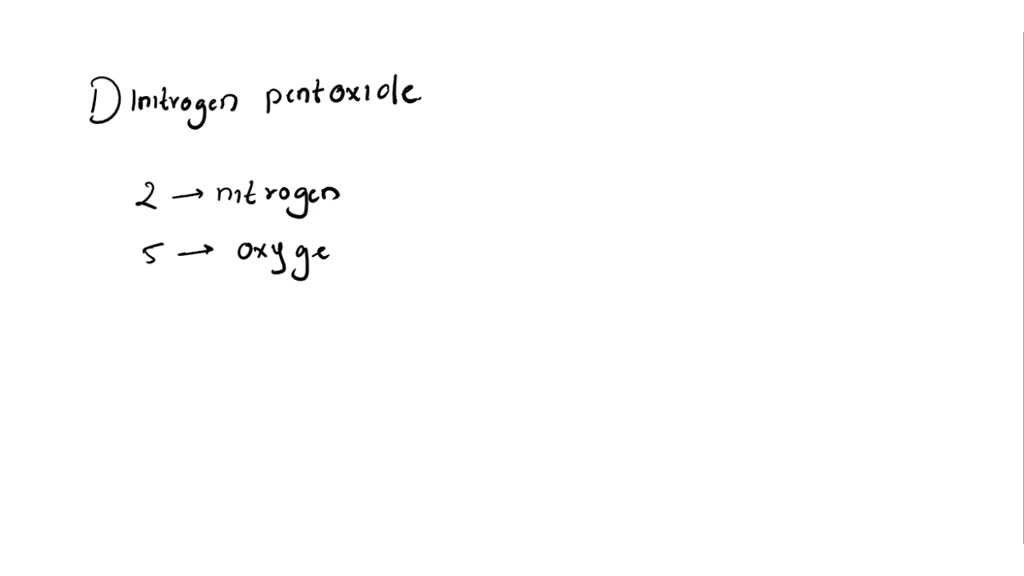 Dinitrogen pentoxide
2 → nitrogen
5 → oxyge